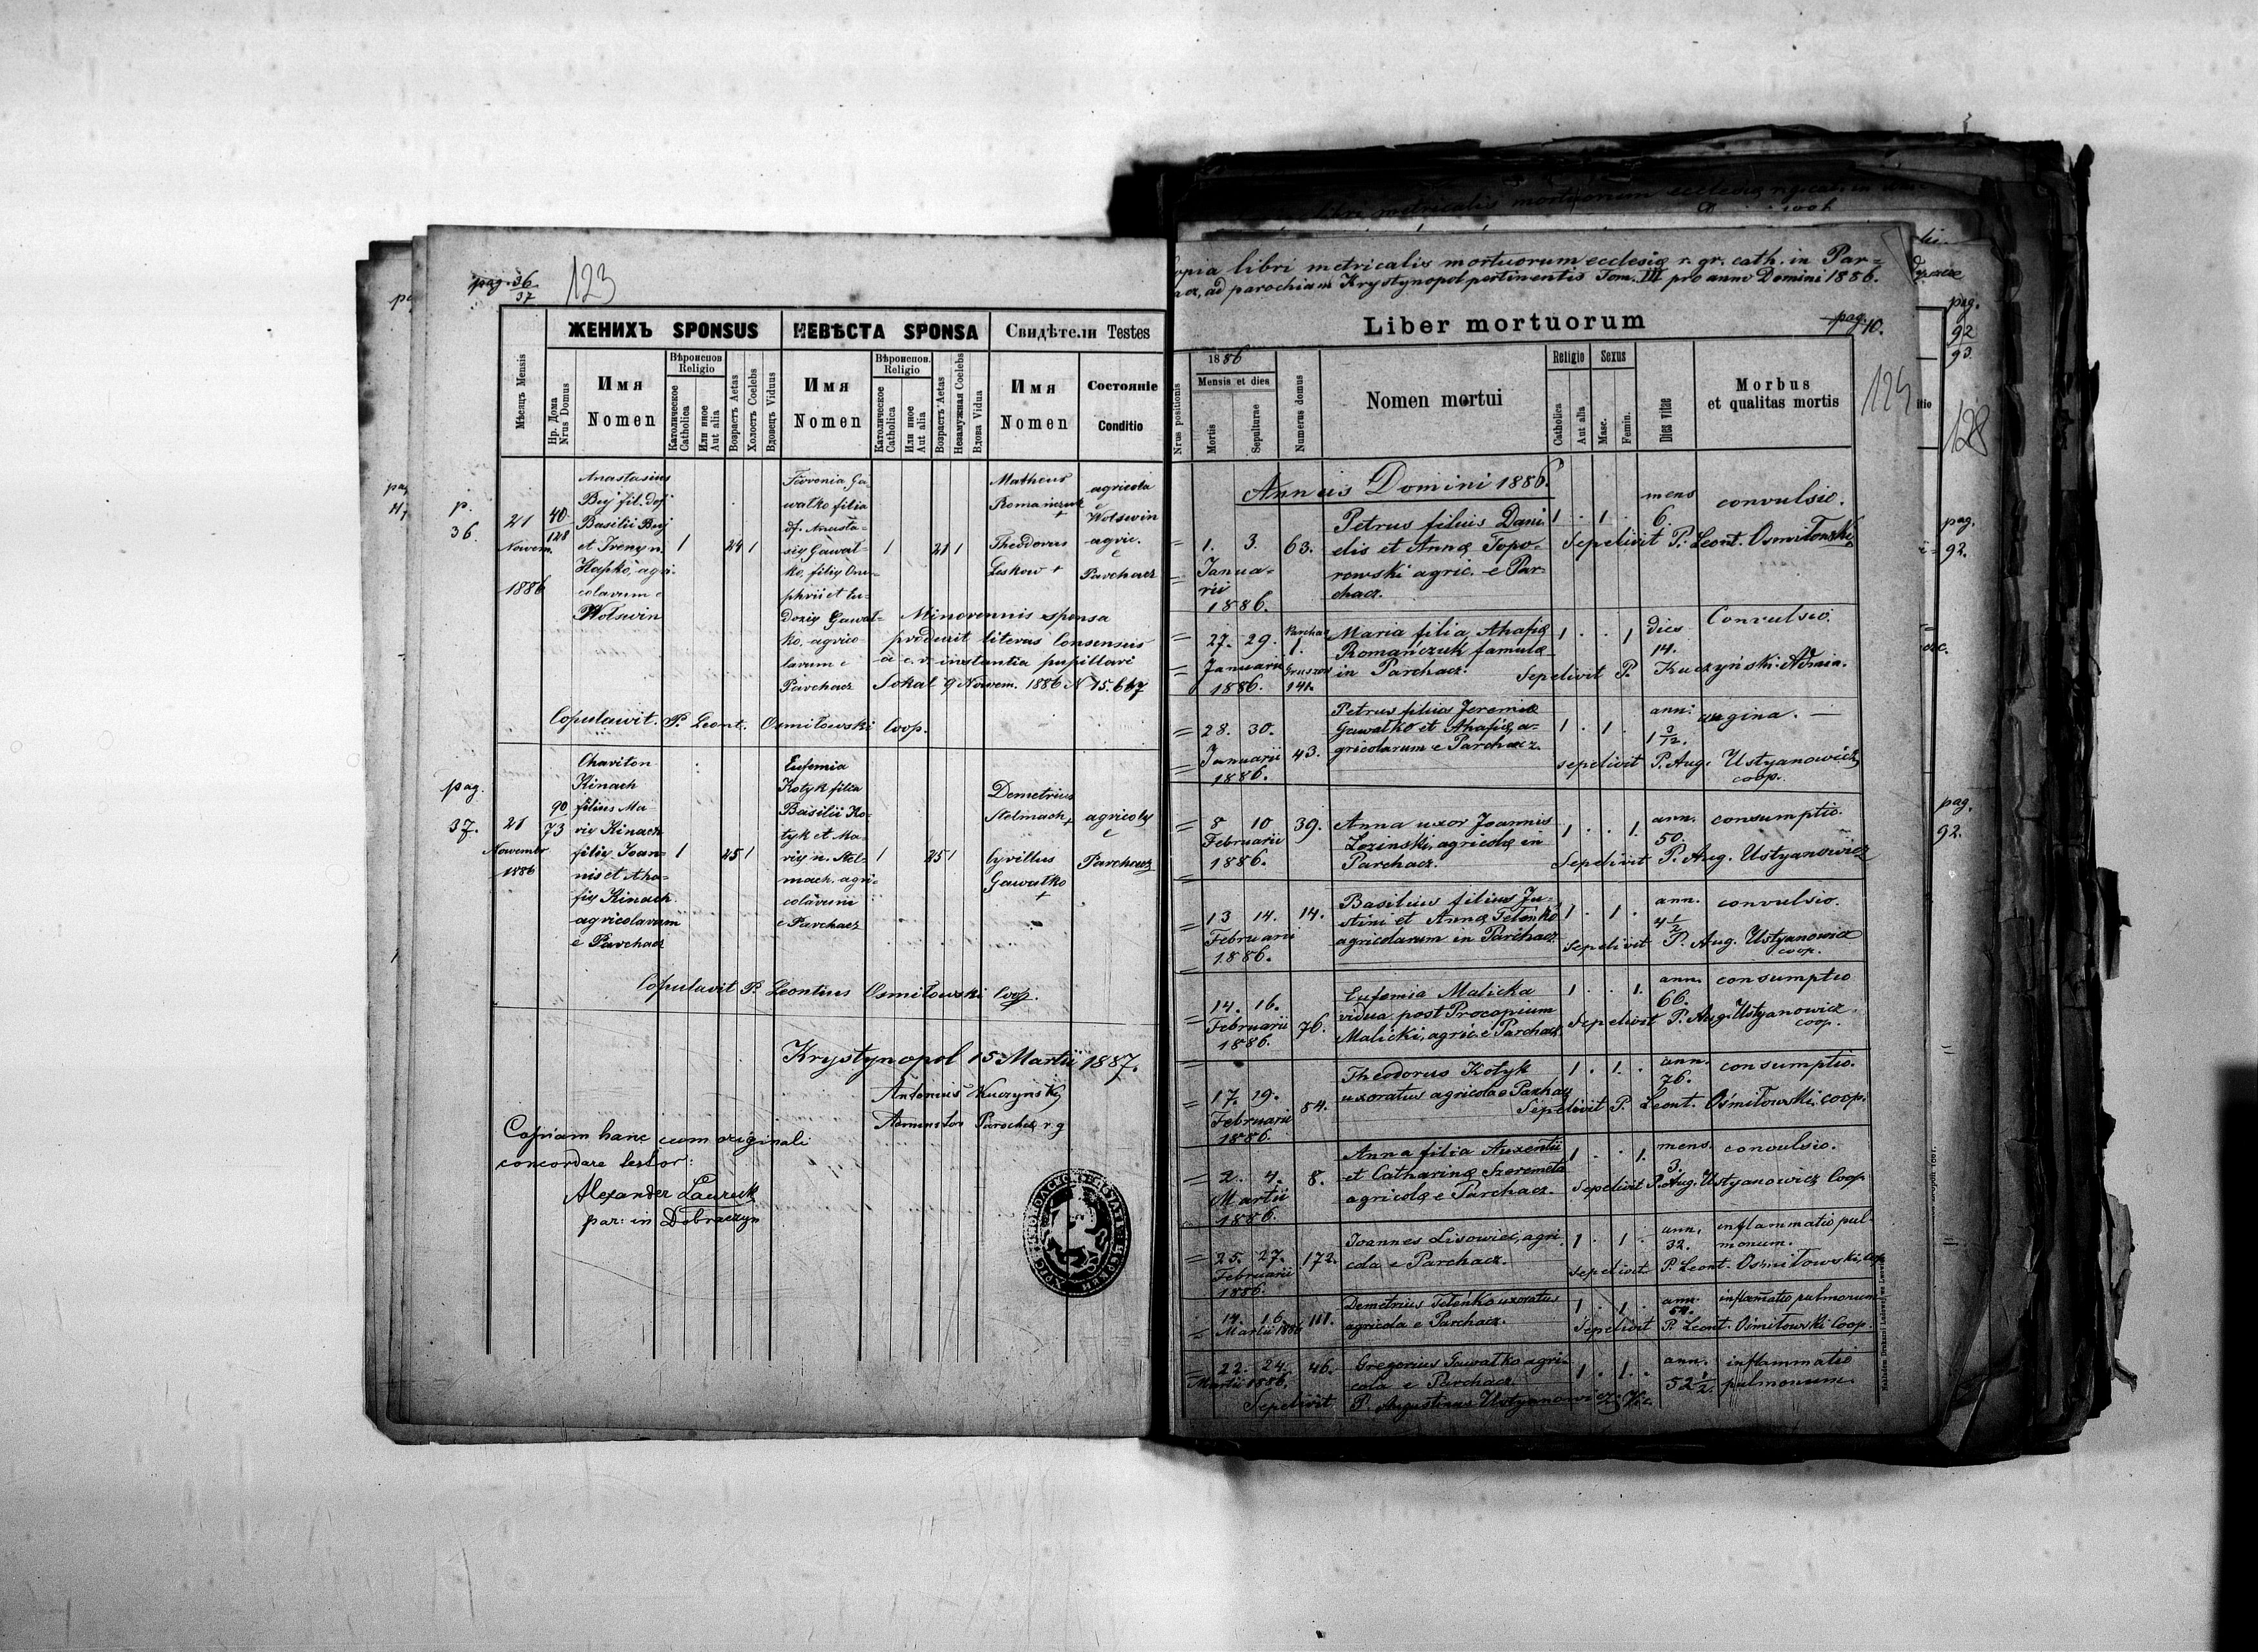 pag. 36
37
123
ЖЕНИХЪ SPONSUS
НЕВѢСТА SPONSA
Свидѣтели Testes
Мѣсяцъ Mensis
Нр. Дома
Nrus Domus
Имя
Nomen
Вѣроиспов
Religio
Католическое
Catholica
Или иное
Aut alia
Возрастъ Aetas
Холостъ Coelebs
Вдовецъ Viduus
Имя
Nomen
Вѣроиспов.
Religio
Католическое
Catholica
Или иное
Aut alia
Возрастъ Aetas
Незамужная Coelebs
Вдова Vidua
Имя
Nomen
Состоянie
Conditio
p.
36.
21
Novem.
1886
40
128
Anastasius
Buj fil. def
Basilii Buj
et Ireny n.
Hapko, agri-
colarum e
Wolswin
1
24 1
Fevronia Ga-
walko filia
df. Anasta-
siy Gawal-
ko, filiy Onu-
phrii et Eu-
doxiy Gawal-
ko, agrico-
larum e
Parchacz
1
21 1
Matheus
Romańczuk
+
Theodorus
Leskow +
agricola
e
Wolswin
agric.
e
Parchacz
Minorennis sponsa
produxit literas Consensus
a c. r. instantia pupillari
Sokal 9 Novem. 1886 N 15.667
Copulavit. P. Leont. Osmiłowski Coop.
pag.
37.
21
Novembr
1886
90
73
Chariton
Kinach
filius Ma
riy Kinach
filiy Joan-
nis et Aha-
fiy Kinach
agricolarum
e Parchacz
1
25 1
Eufemia
Kotyk filia
Basilii Ko-
tyk et Ma-
riy n. Stel-
mach. agri-
colarum
e Parchacz
1
25 1
Demetrius
Stelmach +
Cyrillus
Gawalko
+
agricoly
e
Parchacz
Copulavit P. Leontius Osmiłowski Coop.
Krystynopol 15 Martii 1887.
Antonius Kuczyński
Parochiy r. g
Copiam hanc cum originali
concordare testor:
Alexander Laurecki
par: in Dobraczyn
Copia libri metricalis mortuorum ecclesię r. gr. cath. in Par=
chacz, ad parochiam Krystynopol pertinentis Tom. III pro anno Domini 1886.
Liber mortuorum
pag. 10.
124
Nrus positionis
1886
Mensis et dies
Mortis
Sepulturae
Numerus domus
Nomen mortui
Religio
Catholica
Aut alia
Sexus
Masc.
Femin.
Dies vitae
Morbus
et qualitas mortis
Annus Domini 1886.
1. 3.
Janua-
rii
1886.
63.
Petrus filius Dani
elis et Annę Topo-
rowski agric. e Par-
chacz.
1 . 1 .
mens
6.
convulsio.
Sepelivit P. Leont. Osmiłowski
27. 29.
Januarii
1886.
Parchacz
1.
141.
Maria filia Ahafię
Romańczuk famulę
in Parchacz.
1 . . 1
dies
14.
Convulsio.
Sepelivit P. Kuczyński. Admin.
28. 30.
Januarii
1886.
43.
Petrus filius Jeremię
Gawałko et Ahafię, a-
gricolarum e Parchacz.
1 . 1 .
ann:
1 3/12.
angina. —
sepelivit P. Aug. Ustyanowicz
coop.
8 10
Februarii
1886.
39.
Anna uxor Joannis
Lozinski, agricolę in
Parchacz.
1 . . 1.
ann.
50.
consumptio.
Sepelivit P. Aug. Ustyanowicz
13 14.
Februarii
1886.
14.
Basilius filius Ju-
stini et Annę Teleńko
agricolarum in Parchacz.
1 . 1 .
ann.
4 1/2
convulsio.
Sepelivit P. Aug. Ustyanowicz
coop.
14. 16.
Februarii
1886.
76.
Eufemia Malicka
vidua post Procopium
Malicki, agric. e Parchacz.
1 . . 1.
ann.
66.
consumptio
Sepelivit P. Aug. Ustyanowicz.
coop.
17. 19.
Februarii
1886.
54.
Theodorus Kotyk
uxoratus agricola e Parchacz
1 . 1. .
ann.
76.
consumptio.
Sepelivit P. Leont. Ośmiłowski. coop.
2. 4.
Martii
1886.
8.
Anna filia Auxentii
et Catharinę Szeremeta
agricolę e Parchacz.
1 . . 1.
mens.
3.
convulsio.
Sepelivit P. Aug. Ustyanowicz Coop
25. 27.
Februarii
1886.
172.
Joannes Lisowiec, agri
cola e Parchacz.
1 . 1 .
ann.
32.
inflammatio pul-
monum.
Sepelivit P. Leont. Osmiłowski, Cop
14. 16.
Martii 1886
111.
Demetrius Teleńko uxoratus
agricola e Parchacz.
1 . 1 .
ann.
54.
inflamatio pulmonum
Sepelivit P. Leont. Ośmiłowski Coop.
22. 24.
Martii 1886.
46.
Gregorius Gawałko agri-
cola e Parchacz.
1 . 1 .
ann.
52 1/2.
inflammatio
pulmonum.
Sepelivit P. Augustinus Ustyanowicz Vic.
pag.
92
93.
128
pag.
92.
pag.
92.